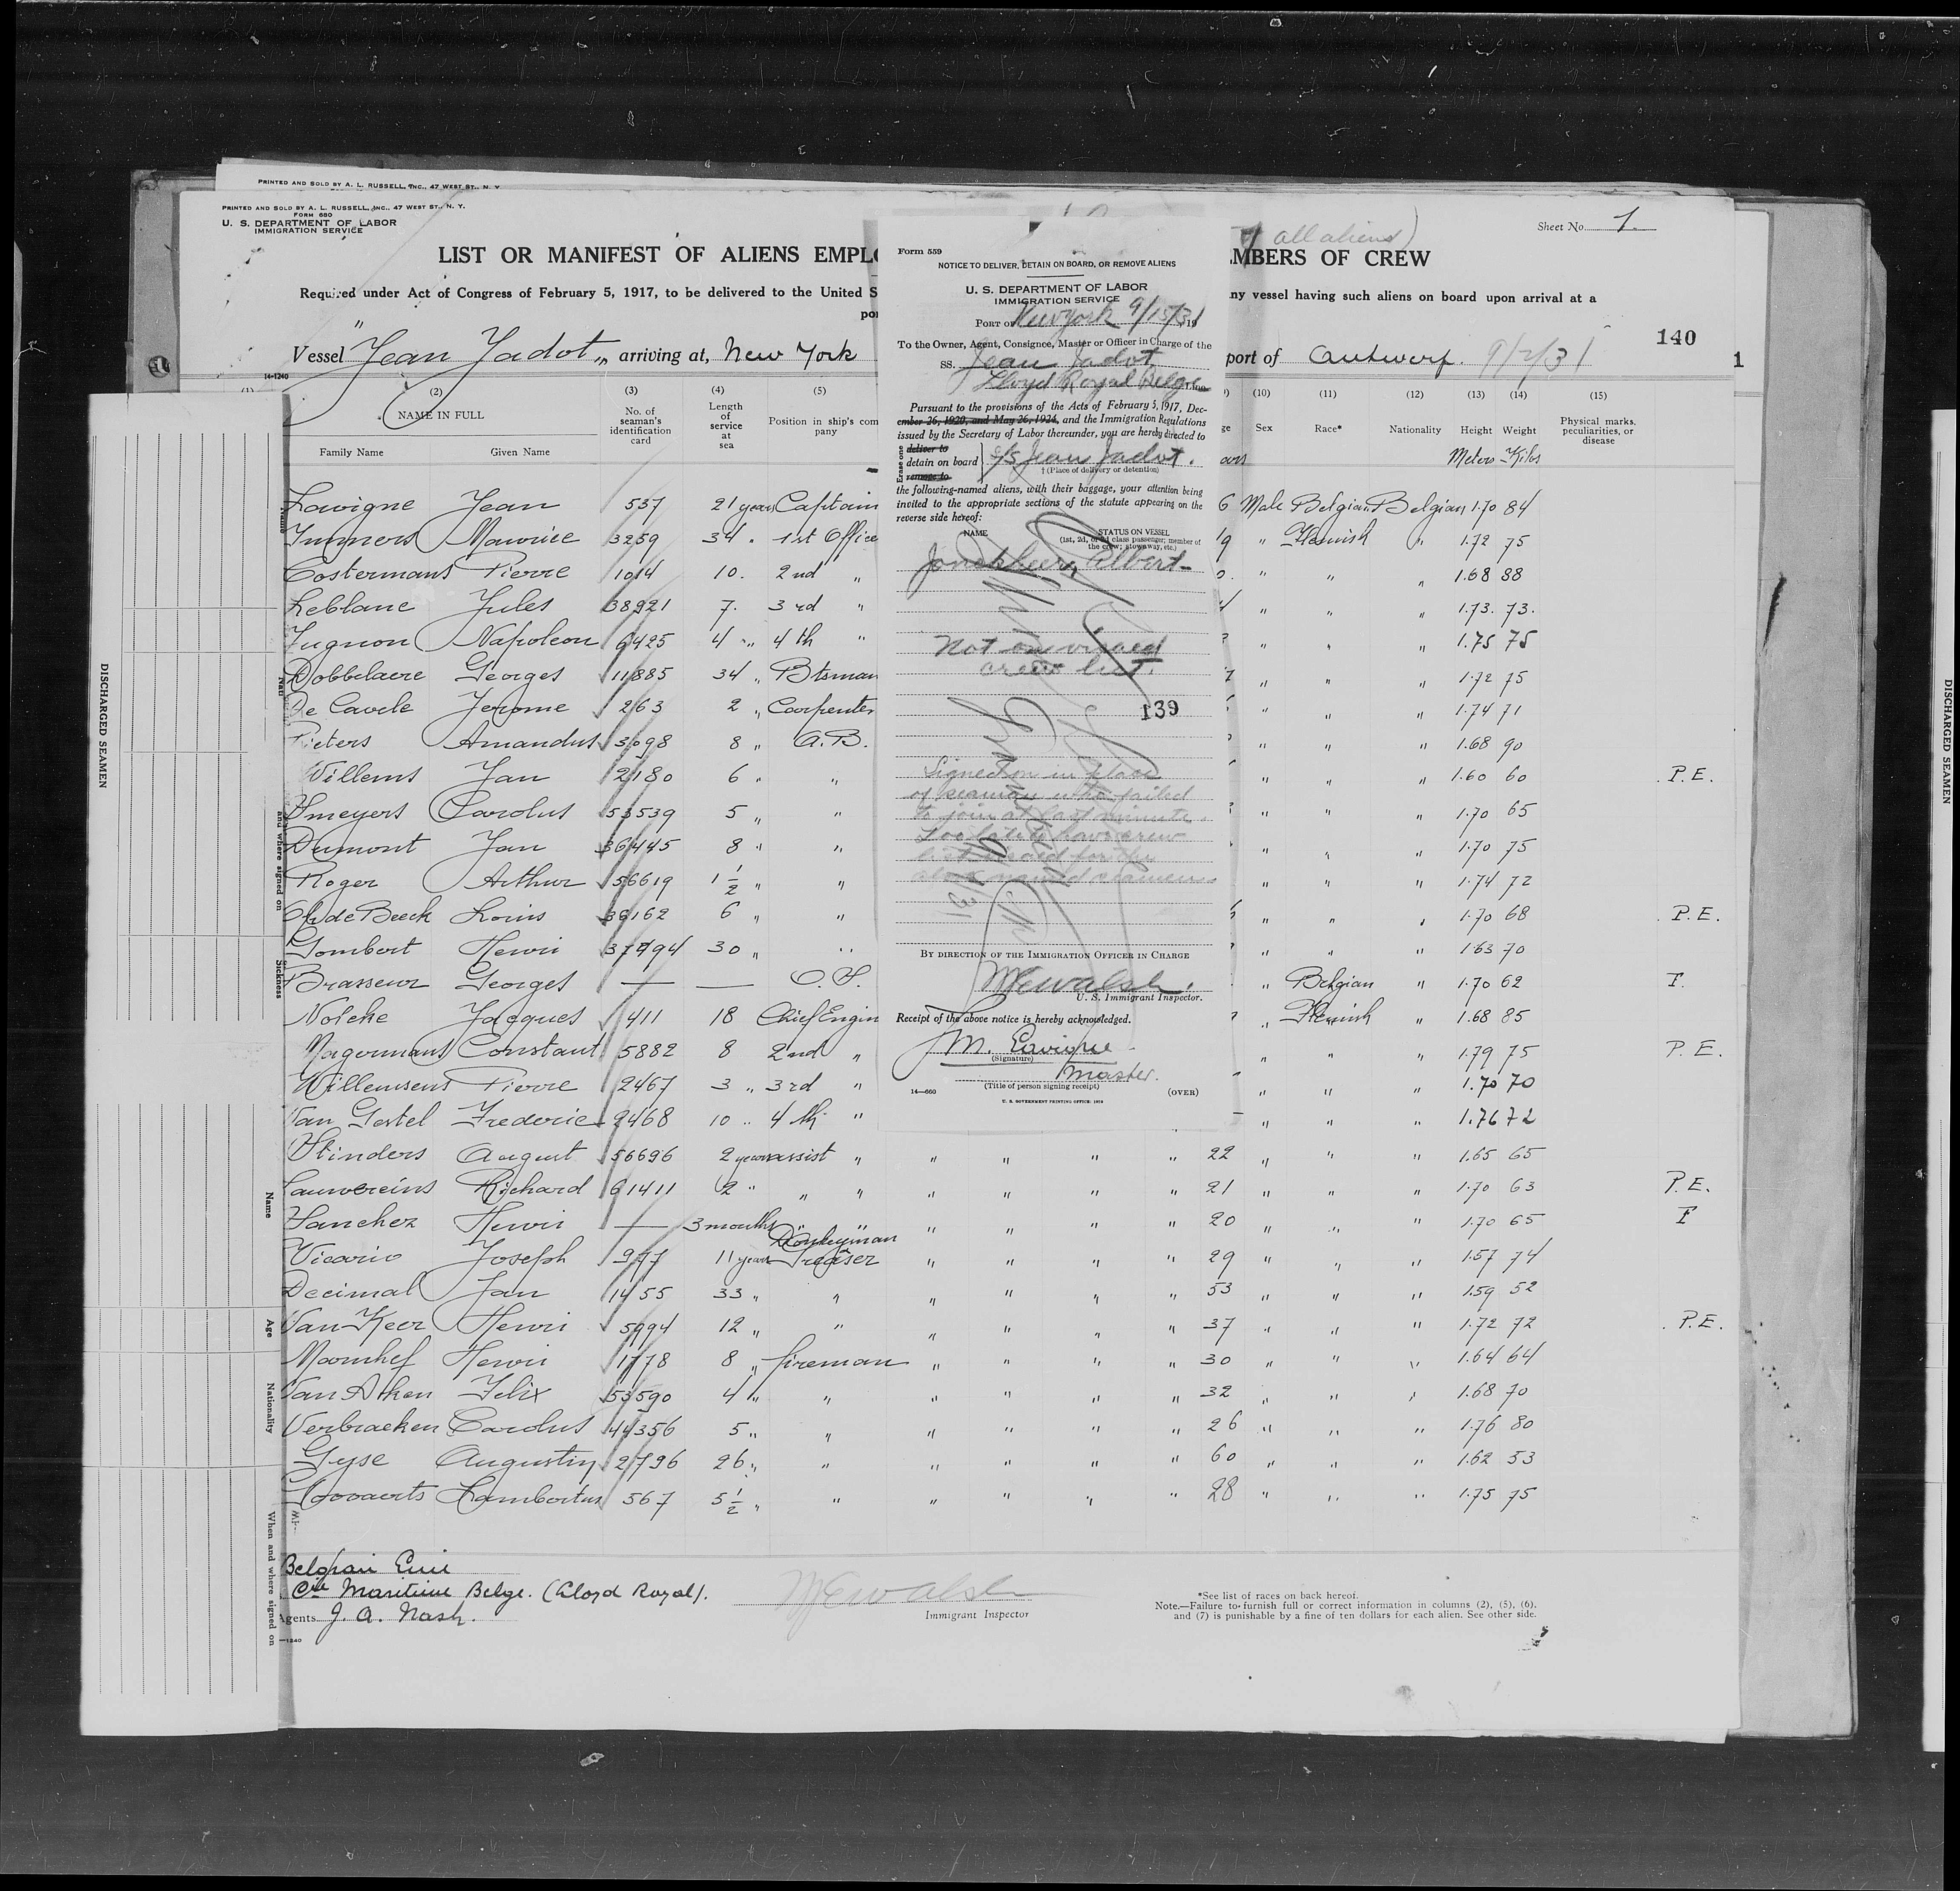 PRINTED AND SOLD BY A. L. RUSSELL, INC., 47 WEST ST., N. Y.
PRINTED AND SOLD BY A. L. RUSSELL, INC., 47 WEST ST., N. Y.
FORM 680
U. S. DEPARTMENT OF LABOR
IMMIGRATION SERVICE
all aliens)
Sheet No. 1.
LIST OR MANIFEST OF ALIENS EMPLO
MBERS OF CREW
Required under Act of Congress of February 5, 1917, to be delivered to the United S
ny vessel having such aliens on board upon arrival at a
por
140
Vessel "Jean Jadot" arriving at, New York
port of Antwerp. 9/2/31
1
14-1240
(1) (2) (3) (4) (5)
(10) (11) (12) (13) (14) (15)
NAME IN FULL
Family Name Given Name
No. of seaman's identification card
Length of service at sea
Position in ship's com
pany
Sex Race* Nationality Height Weight
Physical marks, peculiarities, or disease
Meters Kilos
Lavigne Jean 537 21 years Captain 6 Male Belgian Belgian 1.70 84
Maurice 3259 34 " 1st Office 9 " Flemish " 1.72 75
Costermans Pierre 1014 10. 2nd " " " " 1.68 88
Leblanc Jules 38921 7. 3rd " " " " 1.73. 73.
Napoleon 6425 4 " 4th " " " " 1.75 75
Dobbelaere Georges 11885 34 " Btsman " " " 1.72 75
De Cavele Jerome 263 2 " Carpenter " " " 1.74 71
Pieters Amandus 3098 8 " A.B. " " " 1.68 90
Willems Jan 2180 6 " " " " " 1.60 60 P.E.
Smeyers Carolus 53539 5 " " " " " 1.70 65
Dumont Jan 36445 8 " " " " " 1.70 75
Roger Arthur 56619 1 1/2 " " " " " 1.74 72
Op de Beeck Louis 36162 6 " " " " " 1.70 68 P.E.
Gombert Henri 37494 30 " " " " " 1.63 70
Brasseur Georges — — O.S. " Belgian " 1.70 62 F.
Nolcke Jacques 411 18 Chief Engin " Flemish " 1.68 85
Magermans Constant 5882 8 2nd " " " " 1.79 75 P.E.
Willemsens Pierre 2467 3 " 3rd " " " " 1.70 70
Van Gestel Frederic 2468 10 " 4th " " " " 1.76 72
Stinders August 56696 2 years assist " " " " " 22 " " " 1.65 65
Lauwereins Richard 61411 2 " " " " " " " 21 " " " 1.70 63 P.E.
Sanchez Henri — 3 months " " " " " " 20 " " " 1.70 65 F
Donkeyman
Vicario Joseph 977 11 years Greaser " " " " 29 " " " 1.57 74
Decimal Jan 1455 33 " " " " " " 53 " " " 1.59 52
Van Keer Henri 5994 12 " " " " " " 37 " " " 1.72 72 P.E.
Moomhef Henri 1778 8 " fireman " " " " 30 " " " 1.64 64
Van Aken Felix 53590 4 " " " " " " 32 " " " 1.68 70
Verbraeken Carolus 44356 5 " " " " " " 26 " " " 1.76 80
Gyse Augustin 2796 26 " " " " " " 60 " " " 1.62 53
Govaerts Lambertus 567 5 1/2 " " " " " " 28 " " " 1.75 75
Cie Maritime Belge. (Lloyd Royal).
Agents J. A. Nash.
—1240
WEWalsh
Immigrant Inspector
*See list of races on back hereof.
Note.—Failure to furnish full or correct information in columns (2), (5), (6),
and (7) is punishable by a fine of ten dollars for each alien. See other side.
Form 559
NOTICE TO DELIVER, DETAIN ON BOARD, OR REMOVE ALIENS
U. S. DEPARTMENT OF LABOR
IMMIGRATION SERVICE
PORT OF New York 9/15/31 19
To the Owner, Agent, Consignee, Master or Officer in Charge of the
SS. Jean Jadot
Lloyd Royal Belge Line
Pursuant to the provisions of the Acts of February 5, 1917, Dec-
ember 26, 1920, and May 26, 1924, and the Immigration Regulations
issued by the Secretary of Labor thereunder, you are hereby directed to
Erase one
deliver to
detain on board
remove to
S/S Jean Jadot.
† (Place of delivery or detention)
the following-named aliens, with their baggage, your attention being
invited to the appropriate sections of the statute appearing on the
reverse side hereof:
NAME
STATUS ON VESSEL
(1st, 2d, or 3d class passenger; member of
the crew; stowaway, etc.)
Jonckheer, Albert
Not on visaed
crew list.
139
Signed on in place
of seaman who failed
to join at last minute.
Too late to have crew
list visaed for the
above named seaman
BY DIRECTION OF THE IMMIGRATION OFFICER IN CHARGE
WEWalsh,
U. S. Immigrant Inspector.
Receipt of the above notice is hereby acknowledged.
J. M. Lavigne
(Signature)
Master.
(Title of person signing receipt)
14—660
(OVER)
U. S. GOVERNMENT PRINTING OFFICE
DISCHARGED SEAMEN
Name
and where signed on
Sickness
Name
Age
Nationality
When and where signed on
DISCHARGED SEAMEN